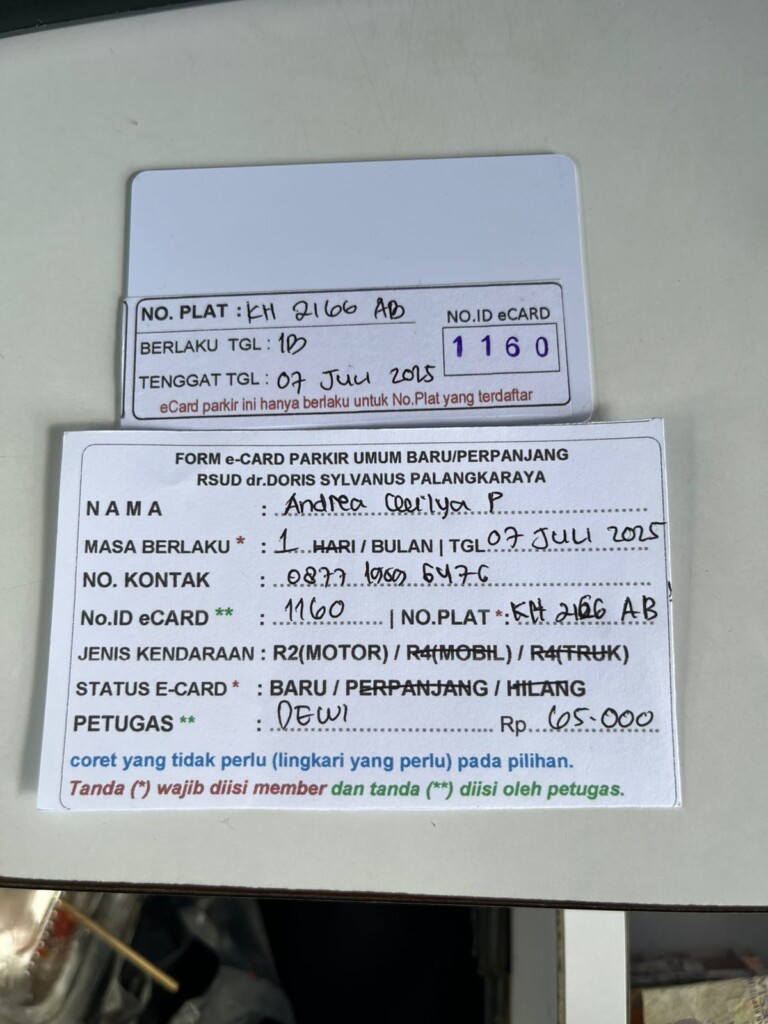 NO. PLAT : KH 2166 AB
NO.ID eCARD
1160
BERLAKU TGL : 1B
TENGGAT TGL : 07 JULI 2025
eCard parkir ini hanya berlaku untuk No.Plat yang terdaftar
FORM e-CARD PARKIR UMUM BARU/PERPANJANG
RSUD dr.DORIS SYLVANUS PALANGKARAYA
NAMA : Andrea P
MASA BERLAKU * : 1 HARI / BULAN | TGL 07 JULI 2025
NO. KONTAK : 0877 6476
No.ID eCARD ** : 1160 | NO.PLAT *: KH 2166 AB
JENIS KENDARAAN : R2(MOTOR) / R4(MOBIL) / R4(TRUK)
STATUS E-CARD * : BARU / PERPANJANG / HILANG
PETUGAS ** : DEWI Rp 65.000
coret yang tidak perlu (lingkari yang perlu) pada pilihan.
Tanda (*) wajib diisi member dan tanda (**) diisi oleh petugas.